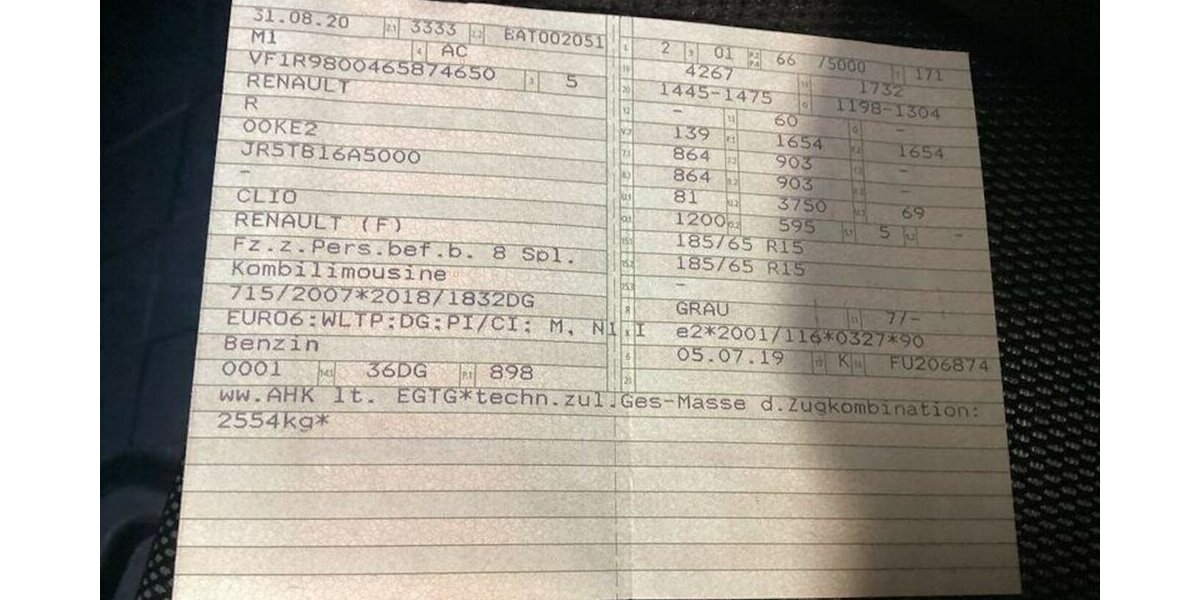 31.08.20 2.1 3333 2.2 EAT002051
M1 4 AC
VF1R9800465874650 3 5
RENAULT
R
OOKE2
JR5TB16A5000
-
CLIO
RENAULT (F)
Fz.z.Pers.bef.b. 8 Spl.
Kombilimousine
715/2007*2018/1832DG
EURO6;WLTP;DG;PI/CI; M, N1 I
Benzin
0001 14.1 36DG P.1 898
L 2 9 01 P.2 P.4 66 /5000 T 171
18 4267 19 1732
20 1445-1475 G 1198-1304
12 - 13 60 Q -
V.7 139 F.1 1654 F.2 1654
7.1 864 7.2 903 7.3 -
8.1 864 8.2 903 8.3 -
U.1 81 U.2 3750 U.3 69
O.1 1200 O.2 595 S.1 5 S.2 -
15.1 185/65 R15
15.2 185/65 R15
15.3 -
R GRAU 11 7/-
K e2*2001/116*0327*90
6 05.07.19 17 K 16 FU206874
21
ww.AHK lt. EGTG*techn.zul.Ges-Masse d.Zugkombination:
2554kg*